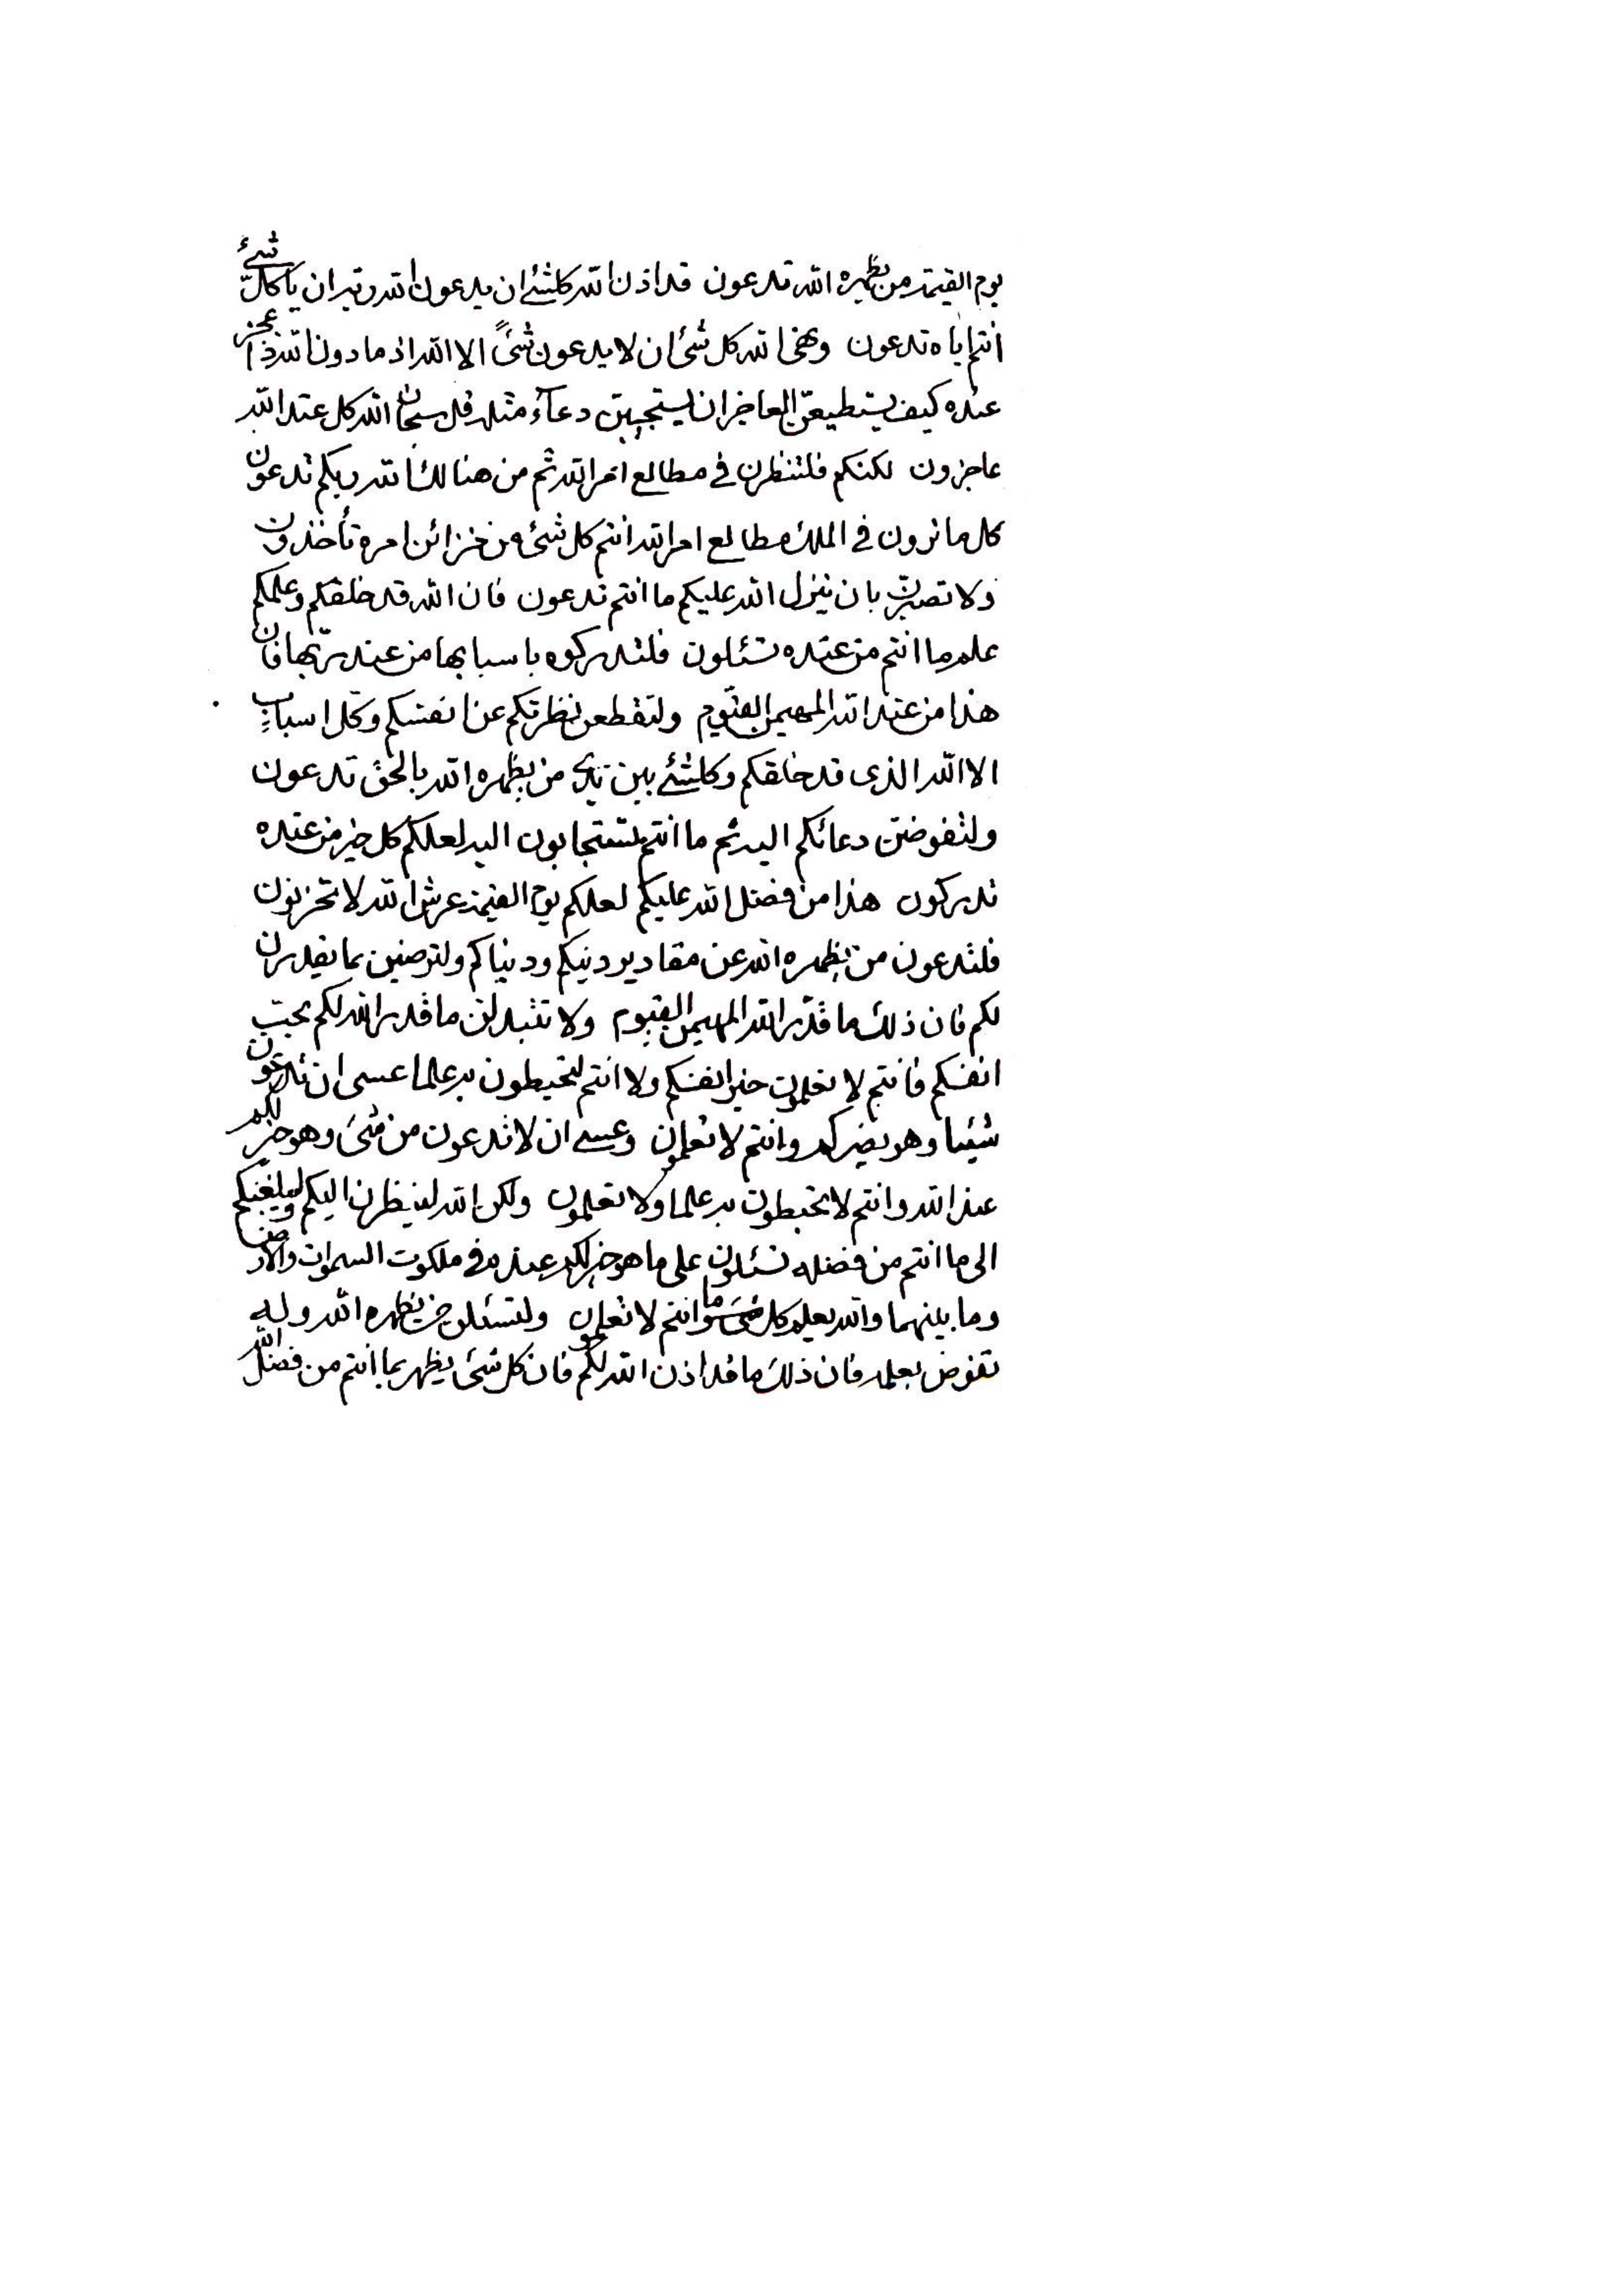 يوم القيمة من يظهره الله تدعون قد اذن الله كلشئ ان يدعون الله ربه ان يا كل شئ
انتم اياه تدعون ونهى الله كل شئ ان لا يدعون شئً الا الله اذ ما دون الله ذا عجز
عنده كيف يستطيعن العاجز ان ليستجيبن دعآء مثله قل سبحان الله كل عند الله
عاجزون لكنكم فلتنظرن في مطالع امر الله ثم من هنالك الله ربكم تدعون
كل ما ترون في الملك مطالع امر الله انتم كل شئ من خزائن امره تأخذون
ولا تصبرن بان ينزل الله عليكم ما انتم تدعون فان الله قد خلقكم وعلمكم
علم ما انتم من عنده تسئلون فلتدركوه باسبابها من عند ربها فان
هذا من عند الله المهيمن القيوم ولتقطعن نظرتكم عن انفسكم وكل اسبابٍ
الا الله الذى قد خلقكم وكلشئ بين يدى من يظهره الله بالحق تدعون
ولتفوضن دعائكم اليه ثم ما انتم لتستجابون اليه لعلكم كل خير من عنده
تدركون هذا من فضل الله عليكم لعلكم يوم القيمة عرش الله لا تحزنون
فلتدعون من يظهره الله عن مقادير دينكم ودنياكم ولترضين بما يقدرن
لكم فان ذلك ما قدّر الله المهيمن القيوم ولا تتبدلن ما قدر الله لكم بحب
انفسكم فانتم لا تعلمون خير انفسكم ولا انتم لتحيطون به علما عسى ان تدعون
شيئا وهو يضركم وانتم لا تعلمون وعسى ان لا تدعون من شئ وهو خير لكم
عند الله وانتم لا تحيطون به علما ولا تعلمون ولكن الله لينظرن اليكم وليبلغنكم
الى ما انتم من فضله تسئلون على ما هو خير لكم عنده في ملكوت السموات والارض
وما بينهما والله يعلم كل شئ وانتم لا تعلمون ولتسئلن من يظهره الله وله
تفوض بعلمه فان ذلك ما قد اذن الله لكم فان كل شئ يظهر بما انتم من فضل الله